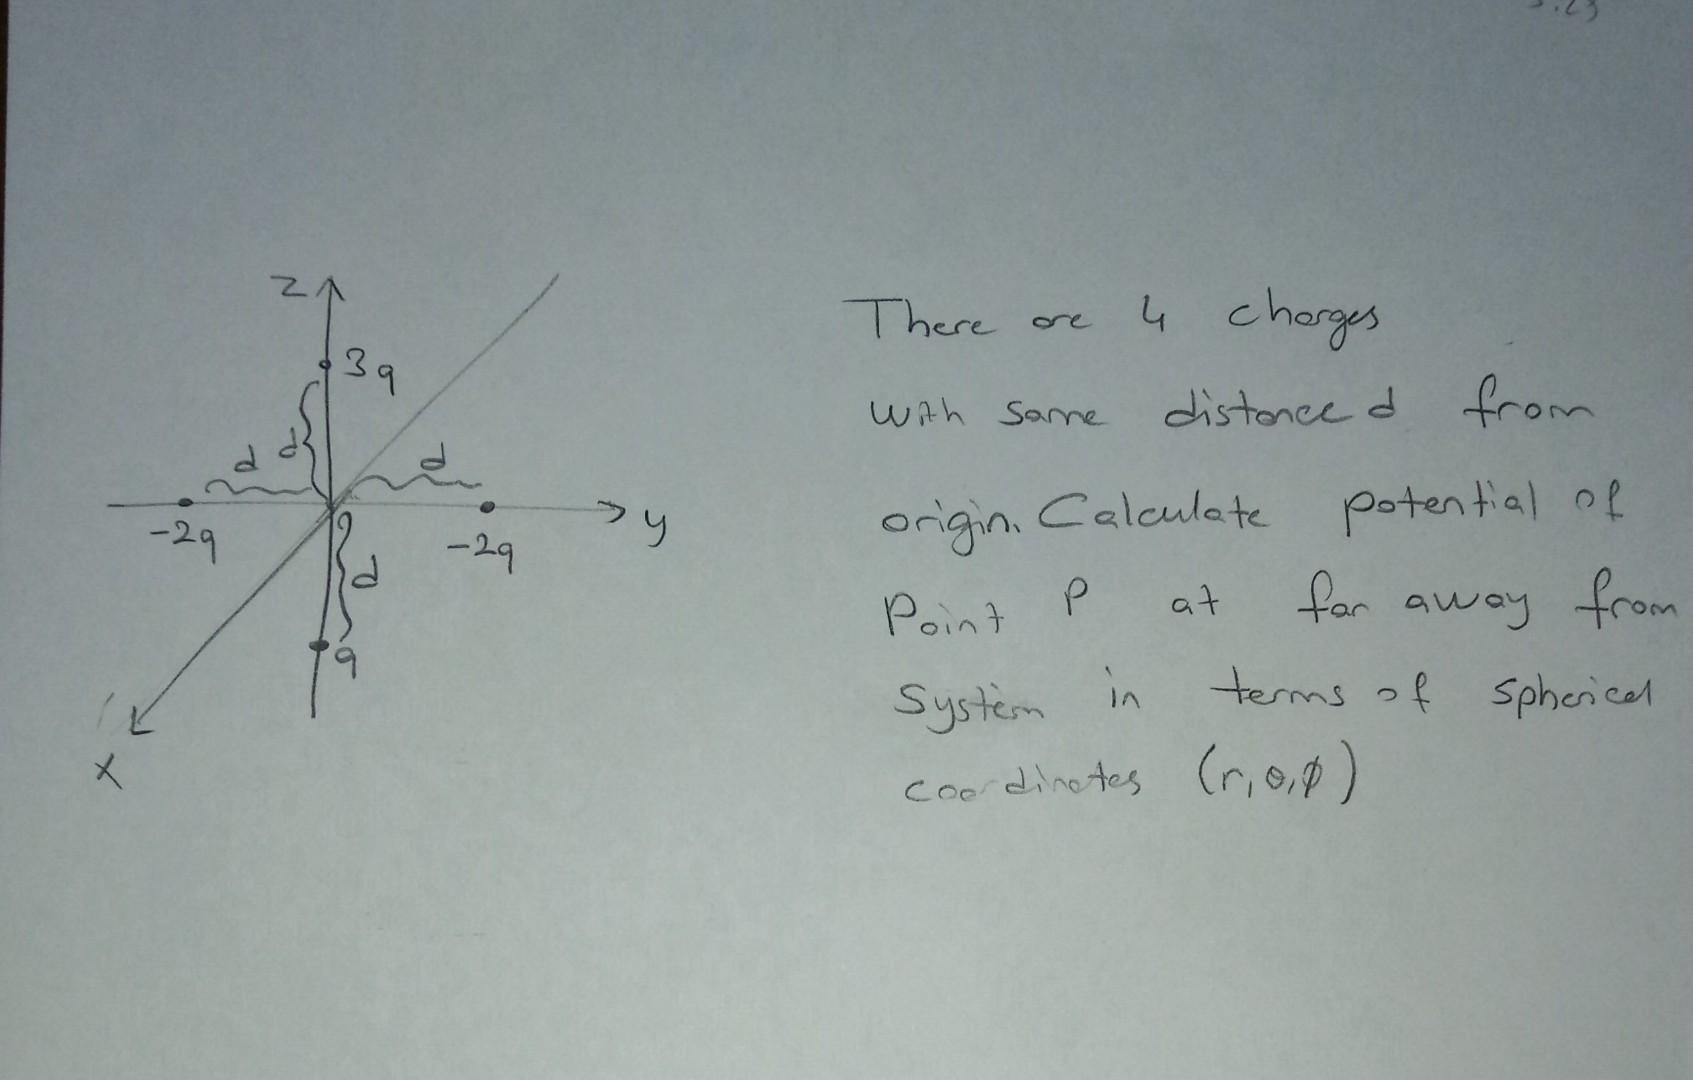 There are 4 charges
with same distance d from
origin. Calculate potential of
Point P at far away from
System in terms of spherical
coordinates (r, θ, ϕ)
z
3q
d
d
d
y
-2q
-2q
d
q
x